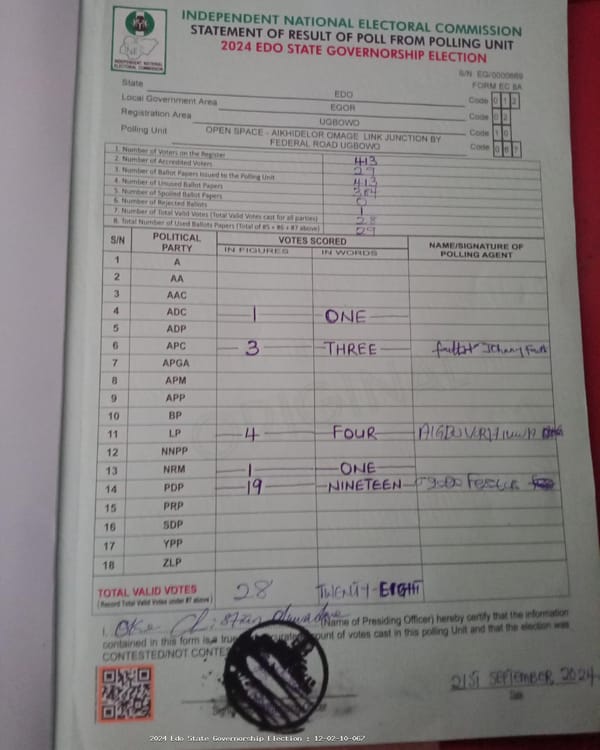 INDEPENDENT NATIONAL ELECTORAL COMMISSION
STATEMENT OF RESULT OF POLL FROM POLLING UNIT
2024 EDO STATE GOVERNORSHIP ELECTION
INDEPENDENT NATIONAL ELECTORAL COMMISSION
S/N. EG/0000869
FORM EC 8A
State EDO Code 0 1 2
Local Government Area EGOR Code 0 2
Registration Area UGBOWO Code 1 0
Polling Unit OPEN SPACE - AIKHIDELOR OMAGE LINK JUNCTION BY FEDERAL ROAD UGBOWO Code 0 6 7
1. Number of Voters on the Register 413
2. Number of Accredited Voters 29
3. Number of Ballot Papers Issued to the Polling Unit 413
4. Number of Unused Ballot Papers 384
5. Number of Spoiled Ballot Papers 0
6. Number of Rejected Ballots 1
7. Number of Total Valid Votes (Total Valid Votes cast for all parties) 28
8. Total Number of Used Ballots Papers (Total of #5 + #6 + #7 above) 29
S/N POLITICAL PARTY VOTES SCORED NAME/SIGNATURE OF POLLING AGENT
IN FIGURES IN WORDS
1 A
2 AA
3 AAC
4 ADC 1 ONE
5 ADP
6 APC 3 THREE
7 APGA
8 APM
9 APP
10 BP
11 LP 4 FOUR
12 NNPP
13 NRM 1 ONE
14 PDP 19 NINETEEN
15 PRP
16 SDP
17 YPP
18 ZLP
TOTAL VALID VOTES 28 TWENTY-EIGHT
(Record Total Valid Votes under #7 above)
I, (Name of Presiding Officer) hereby certify that the information
contained in this form is a true count of votes cast in this polling Unit and that the election was
CONTESTED/NOT
21ST SEPTEMBER, 2024
Date
2024 Edo State Governorship Election : 12-02-10-067